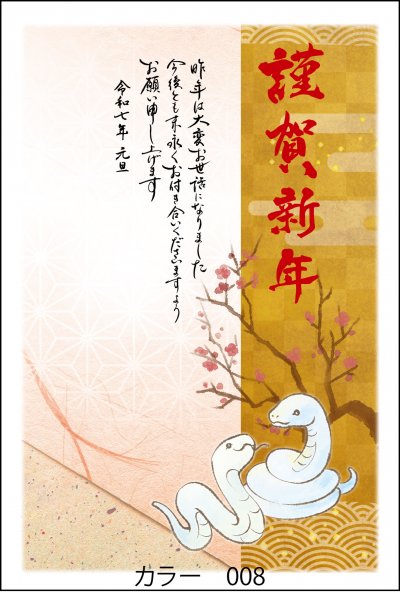 謹賀新年
昨年は大変お世話になりました
今後とも末永くお付き合いくださいますよう
お願い申し上げます
令和七年 元旦
カラー 008